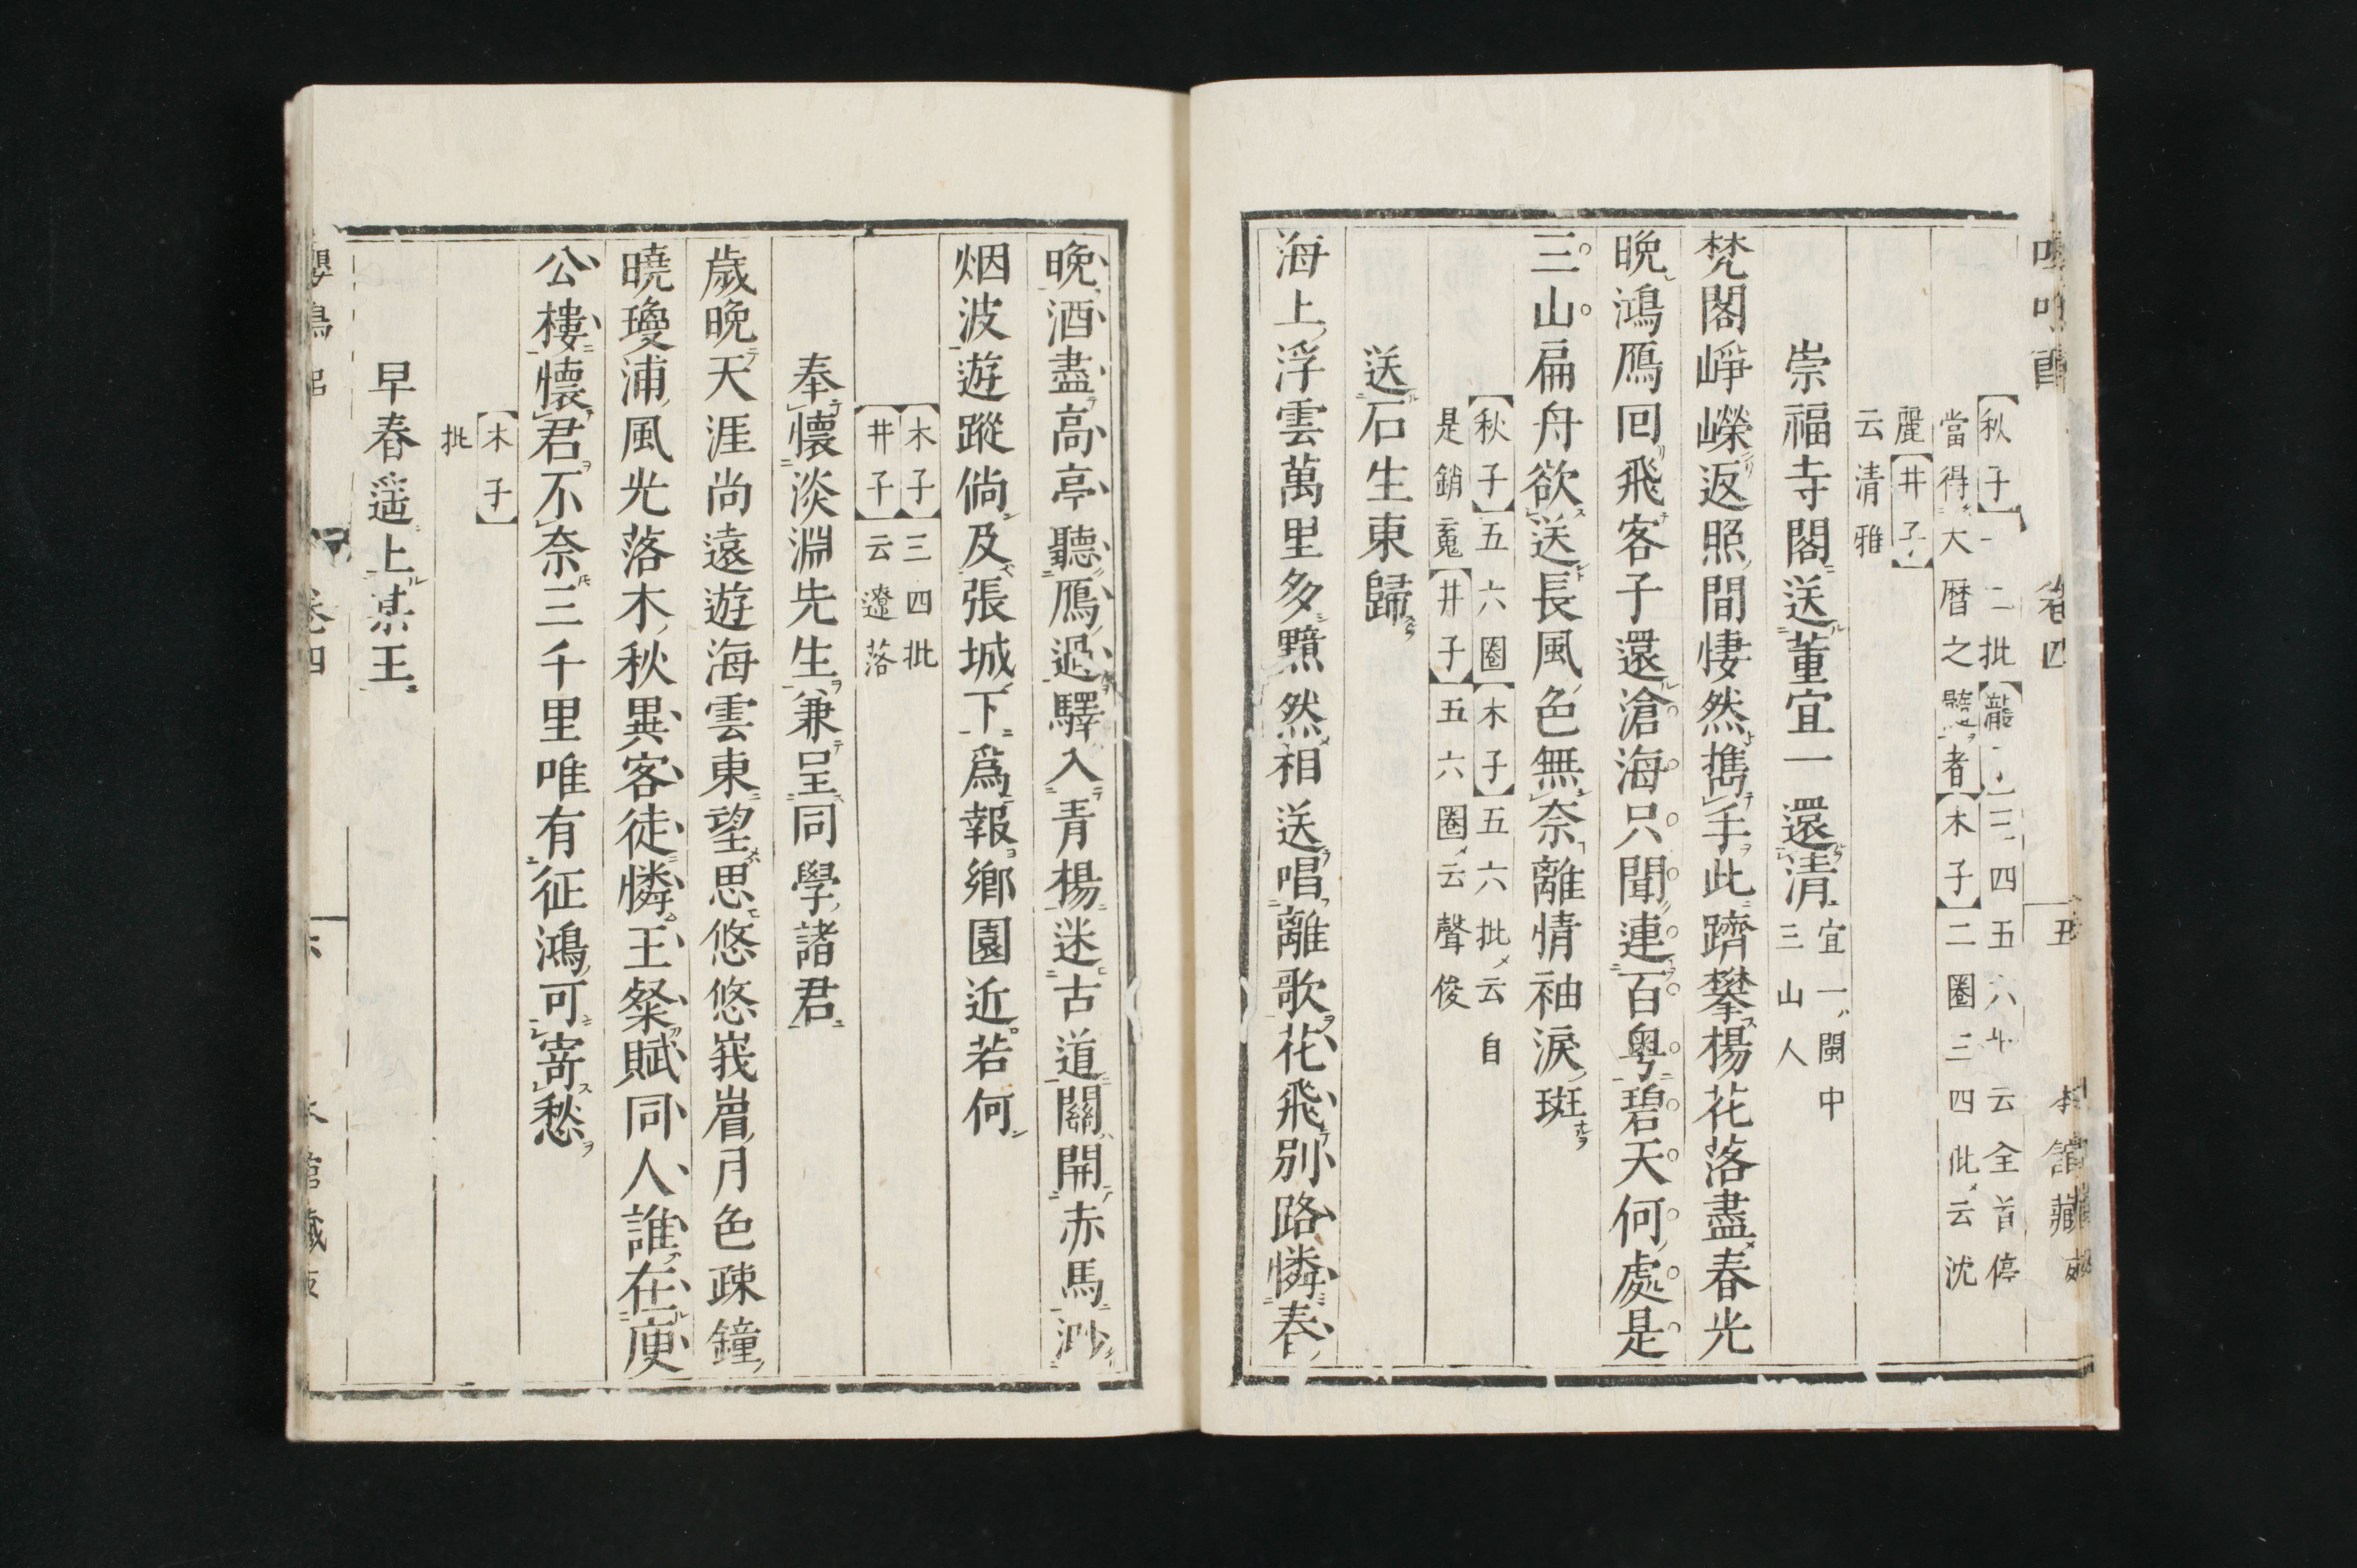 卷四
【秋子】一二批【瀧】三四五六斗云全首停
當得大曆之髓者【木子】二圈三四批云沈
麗【井子】
云清雅
崇福寺閣送董宜一還清 宜一閩中
三山人
梵閣崢嶸返照間悽然攜手此躋攀楊花落盡春光
晩鴻鴈回飛客子還滄海只聞連百粤碧天何處是
三山扁舟欲送長風色無奈離情袖淚斑
【秋子】五六圈【木子】五六批云自
是銷䰟【井子】五六圈云聲俊
送石生東歸
海上浮雲萬里多黯然相送唱離歌花飛別路憐春
晩酒盡高亭聽鴈過驛入青楊迷古道關開赤馬渺
烟波遊蹤倘及張城下爲報鄕園近若何
【木子】三四批
【井子】云遼落
奉懷淡淵先生兼呈同學諸君
歲晩天涯尚遠遊海雲東望思悠悠峩嵋月色疎鐘
曉瓊浦風光落木秋異客徒憐王粲賦同人誰在庾
公樓懷君不奈三千里唯有征鴻可寄愁
【木子】
批
早春遥上某王
卷四